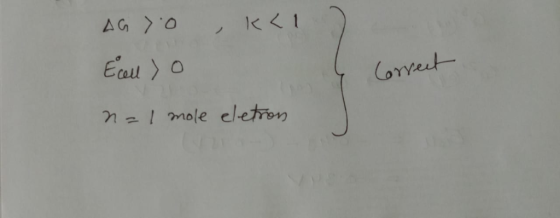 ΔG > 0 , K < 1
E°cell > 0
n = 1 mole eletron
Correct